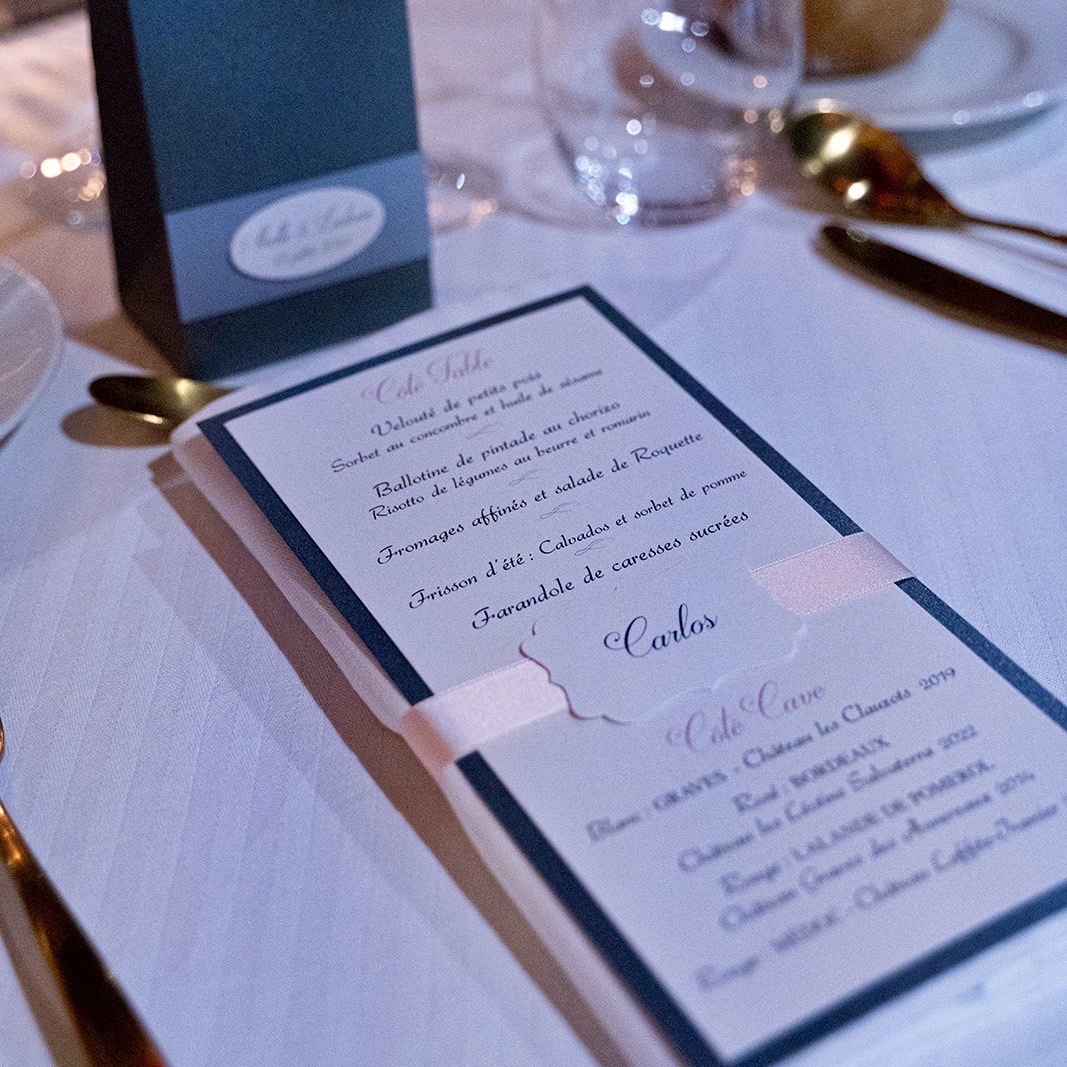 Coté Table
Velouté de petits pois
Sorbet au concombre et huile de sésame
Ballotine de pintade au chorizo
Risotto de légumes au beurre et romarin
Fromages affinés et salade de Roquette
Frisson d'été : Calvados et sorbet de pomme
Farandole de caresses sucrées
Carlos
Coté Cave
Blanc : GRAVES - Château les Clauzots 2019
Rosé : BORDEAUX
Château les 2022
Rouge : LALANDE DE POMEROL
Château des
Rouge : MEDOC - Château